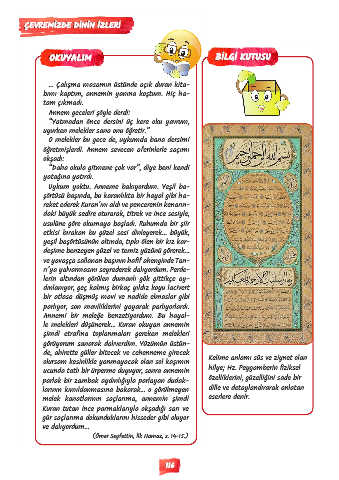 ÇEVREMİZDE DİNİN İZLERİ
OKUYALIM
... Çalışma masamın üstünde açık duran kita-
bımı kaptım, annemin yanına koştum. Hiç ha-
tam çıkmadı.
Annem geceleri şöyle derdi:
“Yatmadan önce dersini üç kere oku yavrum,
uyurken melekler sana onu öğretir.”
O melekler bu gece de, uykumda bana dersimi
öğretmişlerdi. Annem sevecen aferinlerle saçımı
okşadı:
“Daha okula gitmene çok var”, diye beni kendi
yatağına yatırdı.
Uykum yoktu. Anneme bakıyordum. Yeşil ba-
şörtüsü başında, bu karanlıkta bir hayal gibi ha-
reket ederek Kuran’ını aldı ve pencerenin kenarın-
daki büyük sedire oturarak, titrek ve ince sesiyle,
usulüne göre okumaya başladı. Ruhumda bir şiir
etkisi bırakan bu güzel sesi dinleyerek... büyük,
yeşil başörtüsünün altında, tıpkı ölen bir kız kar-
deşime benzeyen güzel ve temiz yüzünü görerek...
ve yavaşça sallanan başının hafif ahenginde Tan-
rı’ya yalvarmasını seyrederek dalıyordum. Perde-
lerin altından görülen dumanlı gök gittikçe ay-
dınlanıyor, geç kalmış birkaç yıldız koyu lacivert
bir atlasa düşmüş mavi ve nadide elmaslar gibi
parlıyor, son maviliklerini yayarak parlıyorlardı.
Annemi bir meleğe benzetiyordum. Bu hayal-
le melekleri düşünerek... Kuran okuyan annemin
şimdi etrafına toplanmaları gereken melekleri
görüyorum sanarak dalıverdim. Yüzümün üstün-
de, ahirette güller bitecek ve cehenneme girecek
olursam kesinlikle yanmayacak olan sol kaşımın
ucunda tatlı bir ürperme duyuyor, sonra annemin
parlak bir zambak aydınlığıyla parlayan dudak-
larının kımıldanmasına bakarak... o görülmeyen
melek kanatlarının saçlarıma, annemin şimdi
Kuran tutan ince parmaklarıyla okşadığı sarı ve
gür saçlarıma dokunduklarını hisseder gibi oluyor
ve dalıyordum...
(Ömer Seyfettin, İlk Namaz, s. 14-15.)
BİLGİ KUTUSU
Kelime anlamı süs ve ziynet olan
hilye; Hz. Peygamberin fiziksel
özelliklerini, güzelliğini sade bir
dille ve detaylandırarak anlatan
eserlere denir.
116